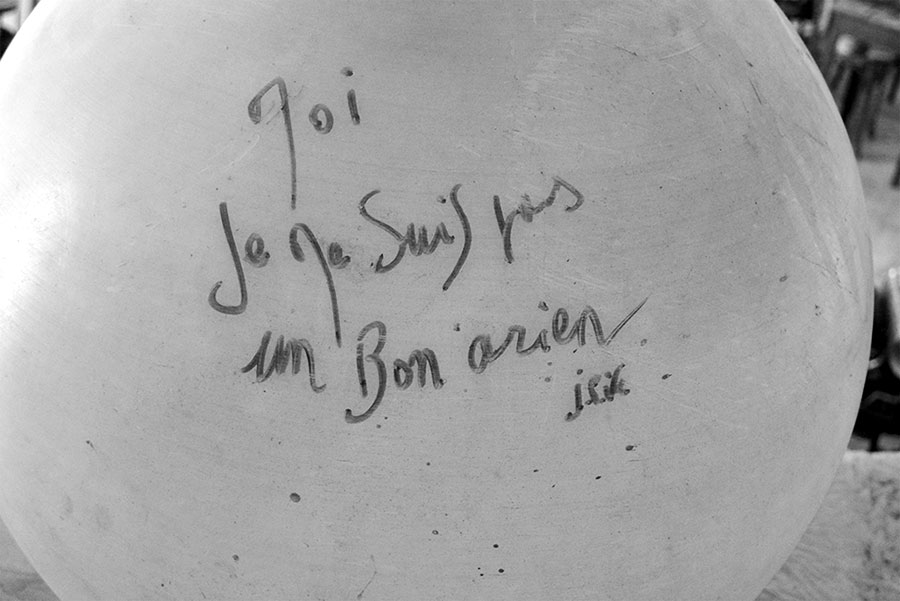 Moi
Je ne suis pas
un Bon'arien
isik